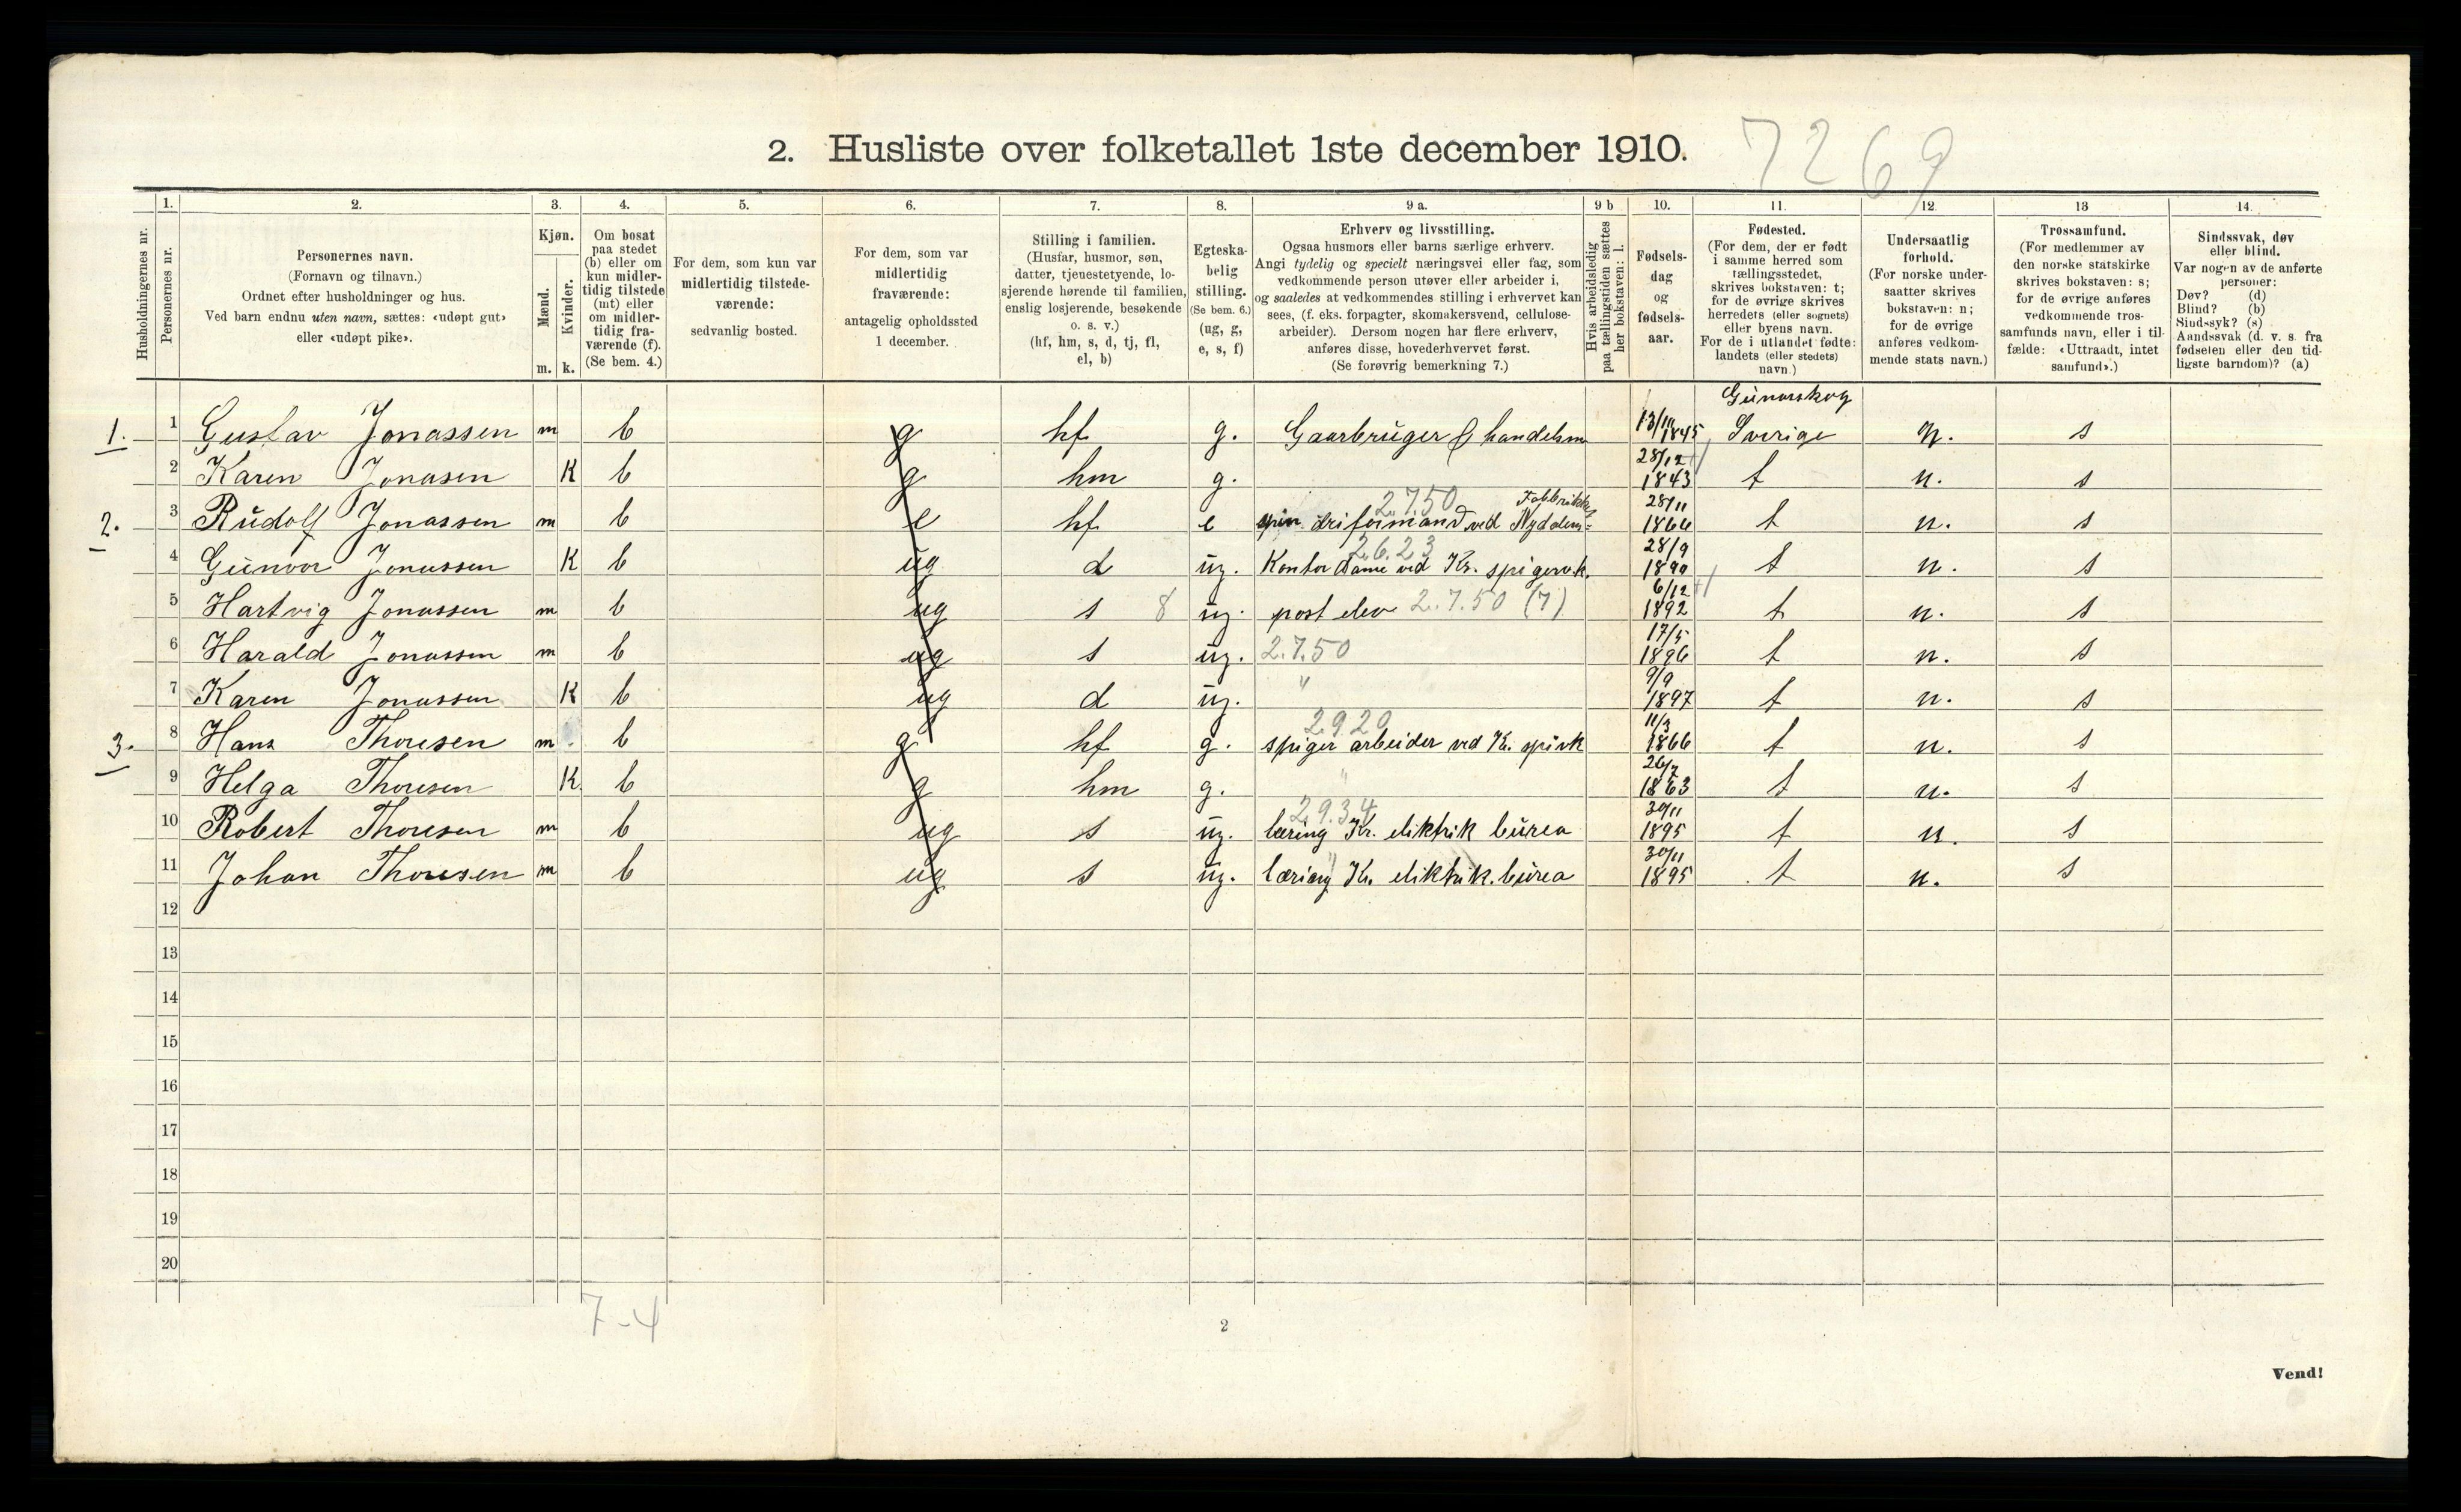 7269
2. Husliste over folketallet 1ste december 1910.
Husholdningernes nr.
1. Personernes nr.
2. Personernes navn.
(Fornavn og tilnavn.)
Ordnet efter husholdninger og hus.
Ved barn endnu uten navn, sættes: «udøpt gut»
eller «udøpt pike».
3. Kjøn.
Mænd. Kvinder.
m. k.
4. Om bosat
paa stedet
(b) eller om
kun midler-
tidig tilstede
(mt) eller
om midler-
tidig fra-
værende (f).
(Se bem. 4.)
5. For dem, som kun var
midlertidig tilstede-
værende:
sedvanlig bosted.
6. For dem, som var
midlertidig
fraværende:
antagelig opholdssted
1 december.
7. Stilling i familien.
(Husfar, husmor, søn,
datter, tjenestetyende, lo-
sjerende hørende til familien,
enslig losjerende, besøkende
o. s. v.)
(hf, hm, s, d, tj, fl,
el, b)
8. Egteska-
belig
stilling.
(Se bem. 6.)
(ug, g,
e, s, f)
9 a. Erhverv og livsstilling.
Ogsaa husmors eller barns særlige erhverv.
Angi tydelig og specielt næringsvei eller fag, som
vedkommende person utøver eller arbeider i,
og saaledes at vedkommendes stilling i erhvervet kan
sees, (f. eks. forpagter, skomakersvend, cellulose-
arbeider). Dersom nogen har flere erhverv,
anføres disse, hovederhvervet først.
(Se forøvrig bemerkning 7.)
9 b Hvis arbeidsledig
paa tællingstiden sættes
her bokstaven: l.
10. Fødsels-
dag
og
fødsels-
aar.
11. Fødested.
(For dem, der er født
i samme herred som
tællingsstedet,
skrives bokstaven: t;
for de øvrige skrives
herredets (eller sognets)
eller byens navn.
For de i utlandet fødte:
landets (eller stedets)
navn.)
12. Undersaatlig
forhold.
(For norske under-
saatter skrives
bokstaven: n;
for de øvrige
anføres vedkom-
mende stats navn.)
13 Trossamfund.
(For medlemmer av
den norske statskirke
skrives bokstaven: s;
for de øvrige anføres
vedkommende tros-
samfunds navn, eller i til-
fælde: «Uttraadt, intet
samfund».)
14. Sindssvak, døv
eller blind.
Var nogen av de anførte
personer:
Døv? (d)
Blind? (b)
Sindssyk? (s)
Aandssvak (d. v. s. fra
fødselen eller den tid-
ligste barndom)? (a)
Gunarskog
1. 1 Gustav Jonassen m b g hf g. Gaarbruger & handelsm 13/10 1845 Sverige n. s
2 Karen Jonasen K b g hm g. 28/12 1843 t n. s
2.7.50 Fabbrikk
2. 3 Rudolf Jonassen m b e hf e driformand ved Nydalens= 28/11 1866 t n. s
2.6.23
4 Gunvor Jonassen K b ug d ug. Kontor dame ved Kr. spigervk. 28/9 1890 t n. s
5 Hartvig Jonassen m b ug s 8 ug. post elev 2.7.50 (7) 6/12 1892 t n. s
6 Harald Jonassen m b ug s ug. 2.7.50 17/5 1896 t n. s
7 Karen Jonassen K b ug d ug. " 9/9 1897 t n. s
2.9.20
3. 8 Hans Thoresen m b g hf g. spiger arbeider ved Kr. spivk 11/3 1866 t n. s
9 Helga Thoresen K b g hm g. " 26/7 1863 t n. s
2.9.34
10 Robert Thoresen m b ug s ug. læring Kr. eliktrik burea 30/11 1895 t n. s
11 Johan Thoresen m b ug s ug. læring Kr. eliktrik. burea 30/11 1895 t n. s
12
13
14
15
16
17
18
19
20
7-4
2
Vend!